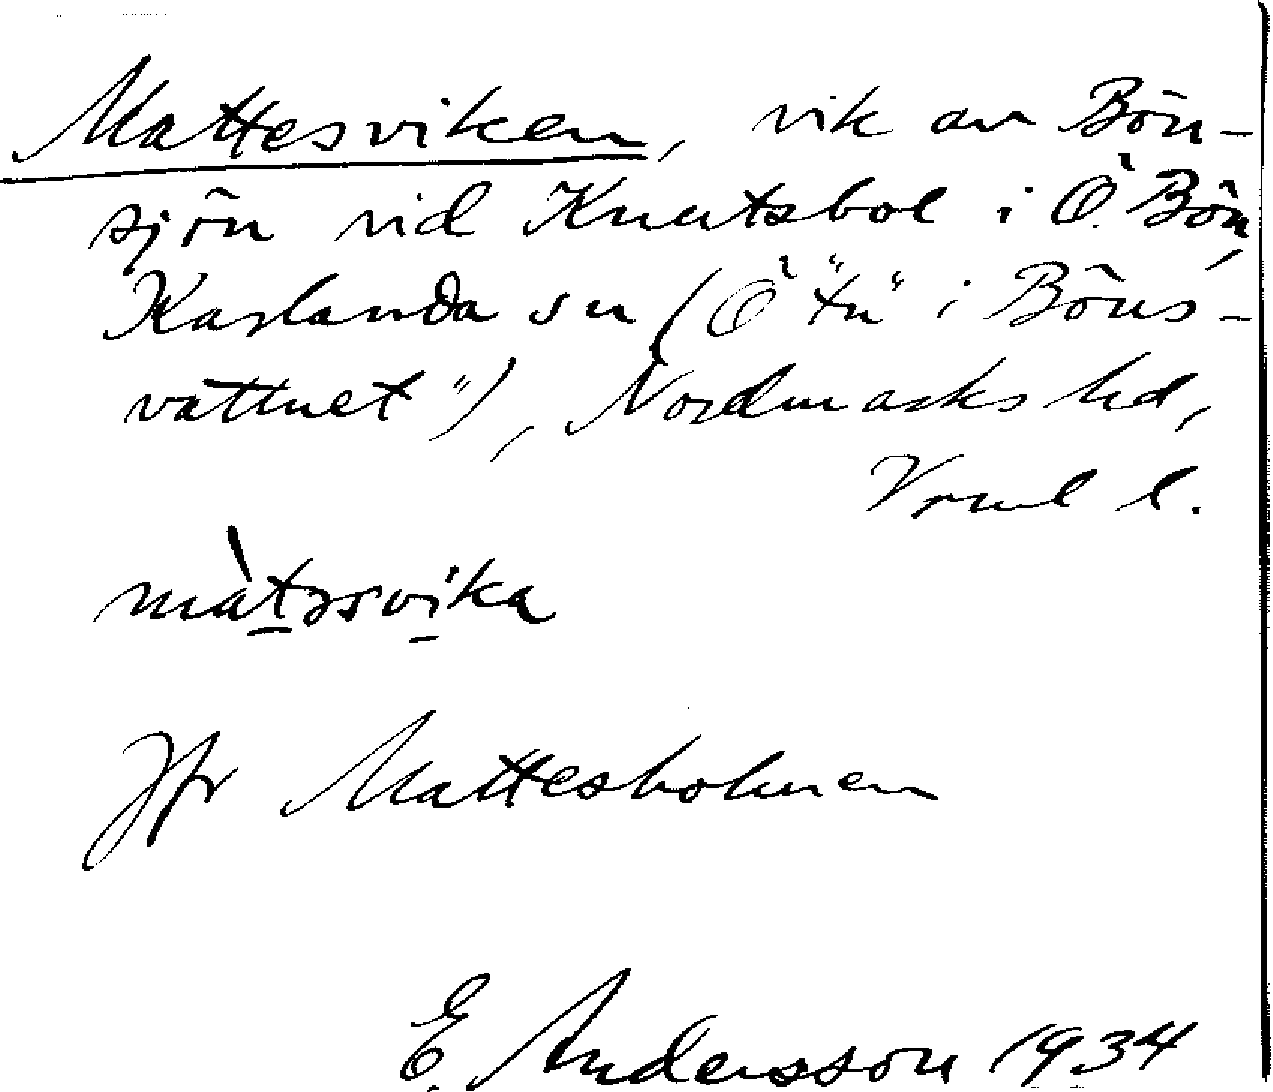 Mattesviken, vik av Bön-
sjön vid Knutsbol i Ö. Bön,
Karlanda sn (Ö "tn" i Böns-
vattnet"), Nordmarks hd,
Vrml l.
màtəsvika
Jfr Mattesholmen
E. Andersson 1934